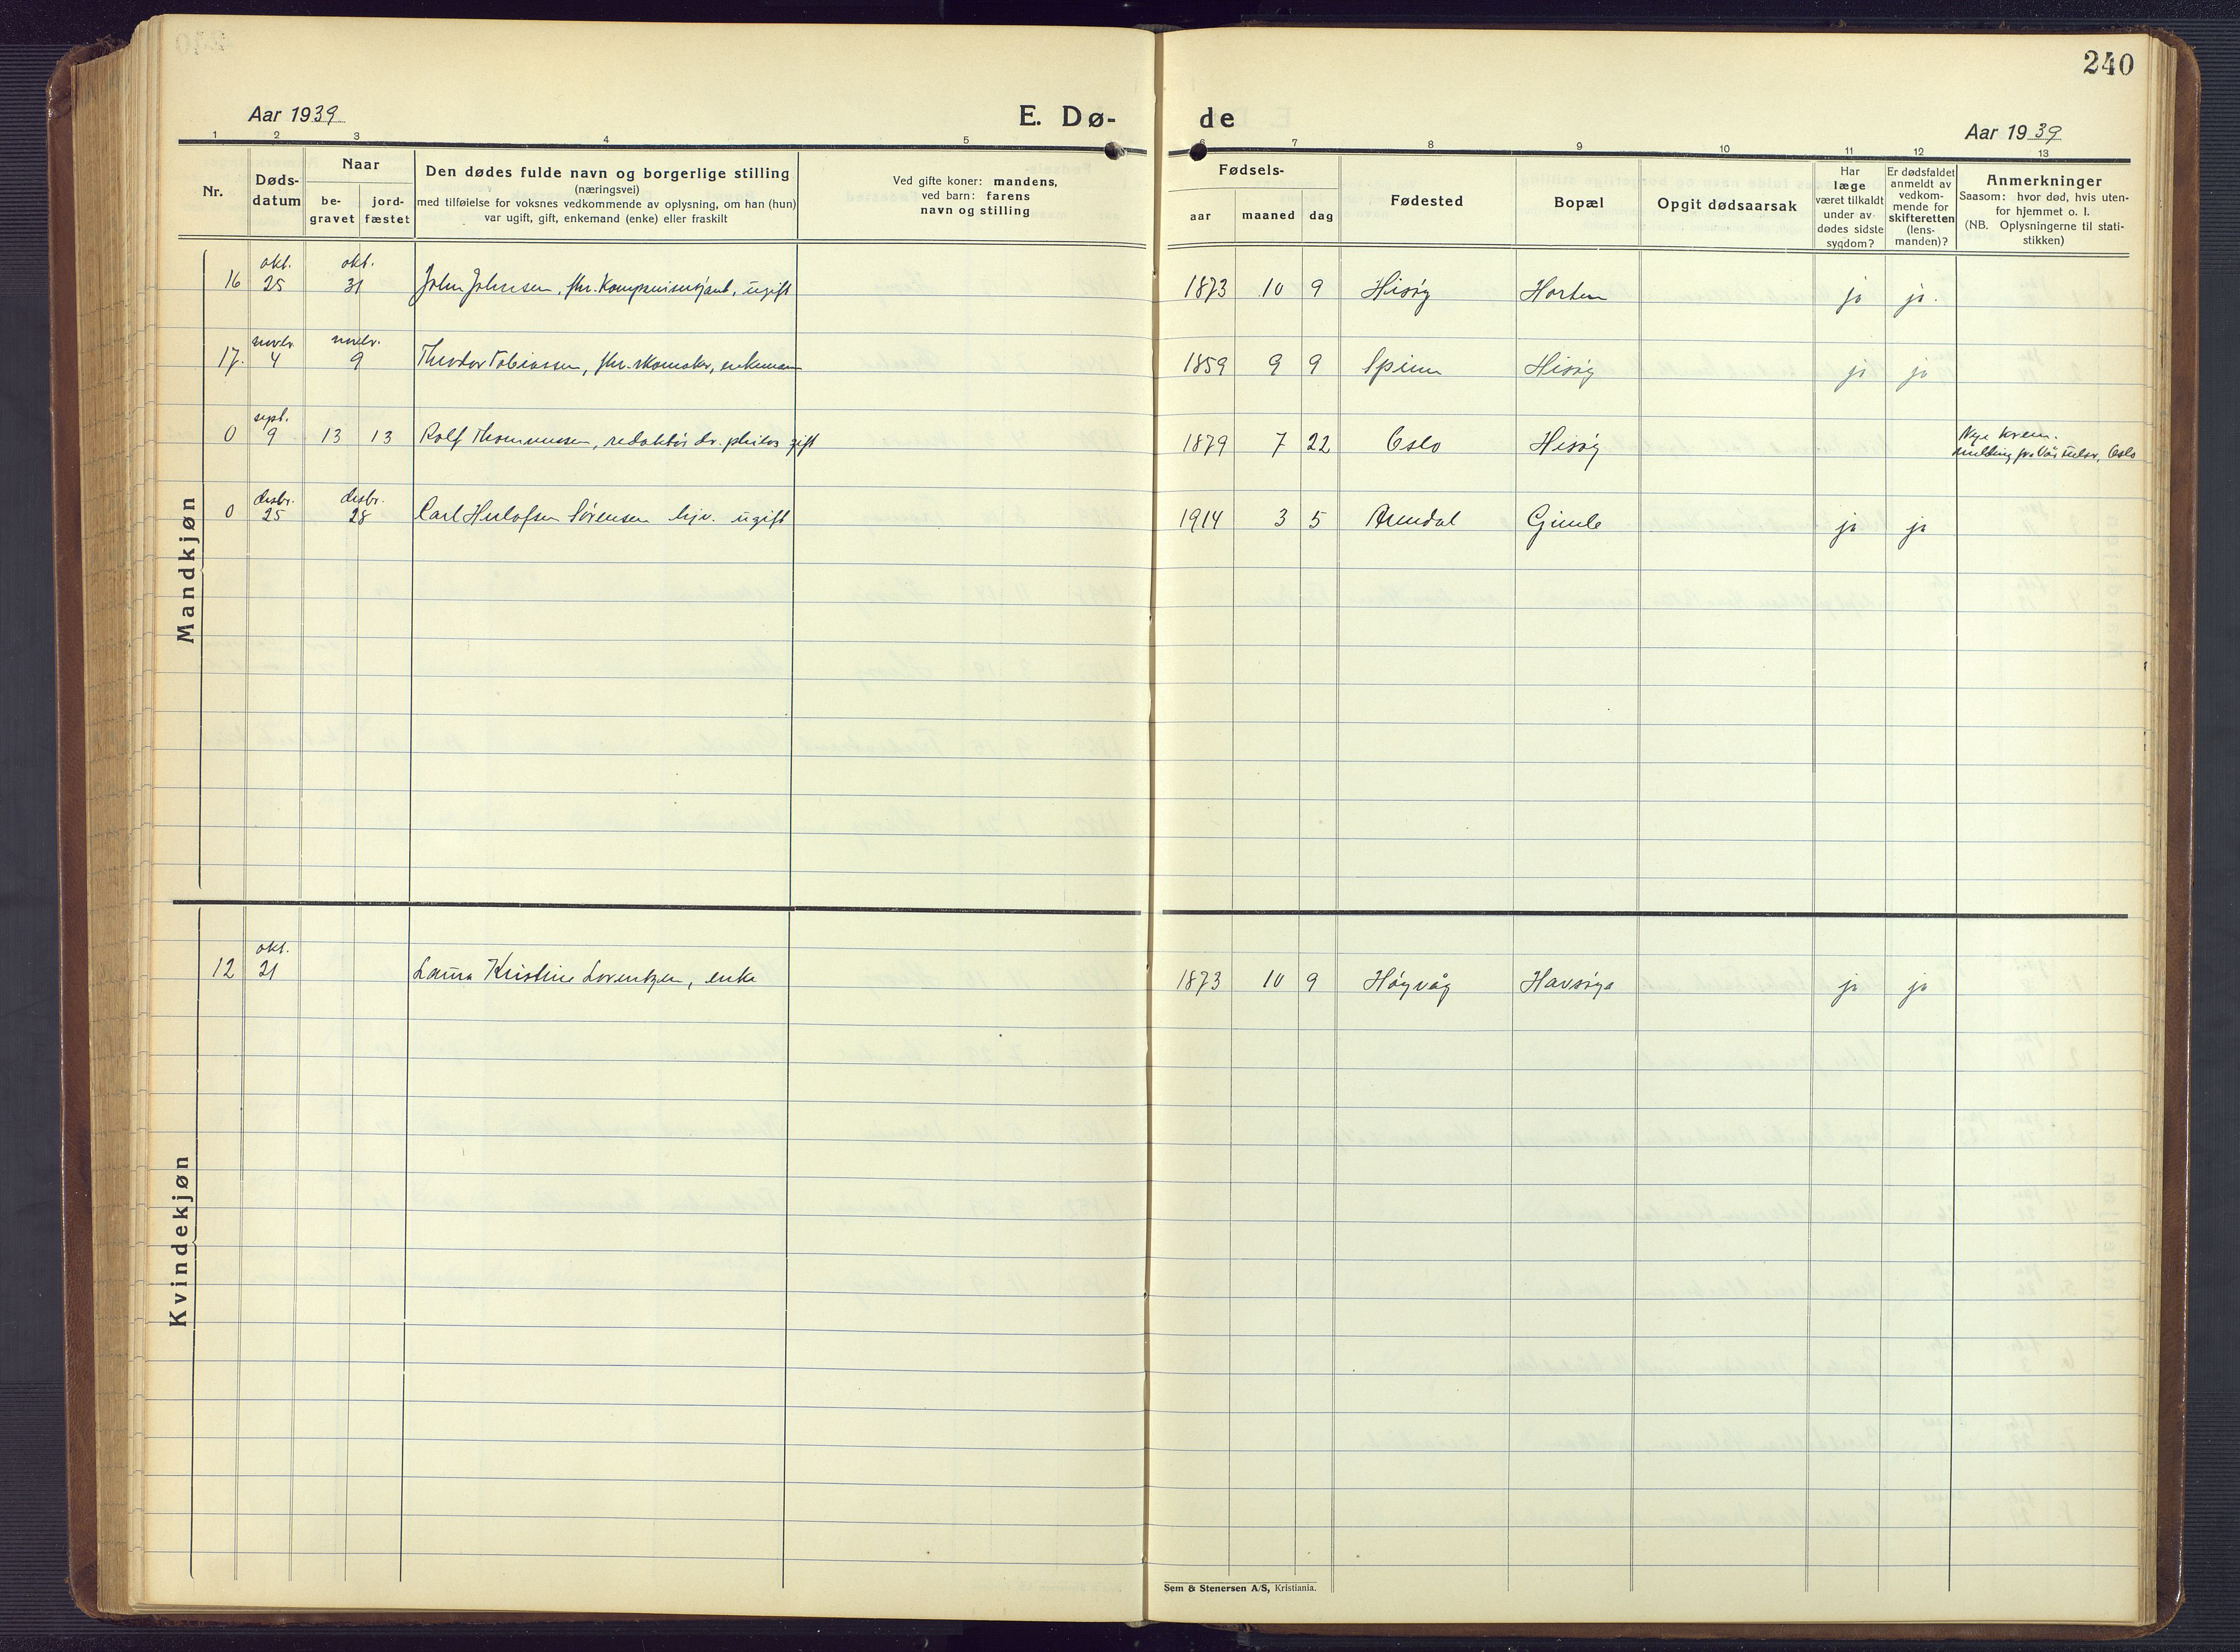 240
Aar 1939
E. Dø-
de
Aar 1939
1 2 3 4 5 6 7 8 9 10 11 12 13
Nr.
Døds-
datum
Naar
be-
gravet
jord-
fæstet
Den dødes fulde navn og borgerlige stilling
(næringsvei)
med tilføielse for voksnes vedkommende av oplysning, om han (hun)
var ugift, gift, enkemand (enke) eller fraskilt
Ved gifte koner: mandens,
ved barn: farens
navn og stilling
Fødsels-
aar maaned dag
Fødested
Bopæl
Opgit dødsaarsak
Har
læge
været tilkaldt
under av-
dødes sidste
sygdom?
Er dødsfaldet
anmeldt av
vedkom-
mende for
skifteretten
(lens-
manden)?
Anmerkninger
Saasom: hvor død, hvis uten-
for hjemmet o. l.
(NB. Oplysningerne til stati-
stikken)
Mandkjøn
okt. okt.
16 25 31 John Johnsen, fhv. ugift 1873 10 9 Hisøy Horten ja ja.
novbr. novbr.
17. 4 9 Theodor Tobiassen, fhv. enkemann 1859 9 9 Spinn Hisøy ja ja
sept.
0 9 13 13 Rolf Thommessen, redaktør dr. philos gift 1879 7 22 Oslo Hisøy
Nye krem.
Vår Oslo
desbr. desbr.
0 25 28 Carl Herlofsen Sørensen ugift 1914 3 5 Arendal Gimle ja ja
Kvindekjøn
okt.
12 21 Laura Kristine Lorentzen, enke 1873 10 9 Høyvåg Havsøya ja ja
Sem & Stenersen A/S, Kristiania.